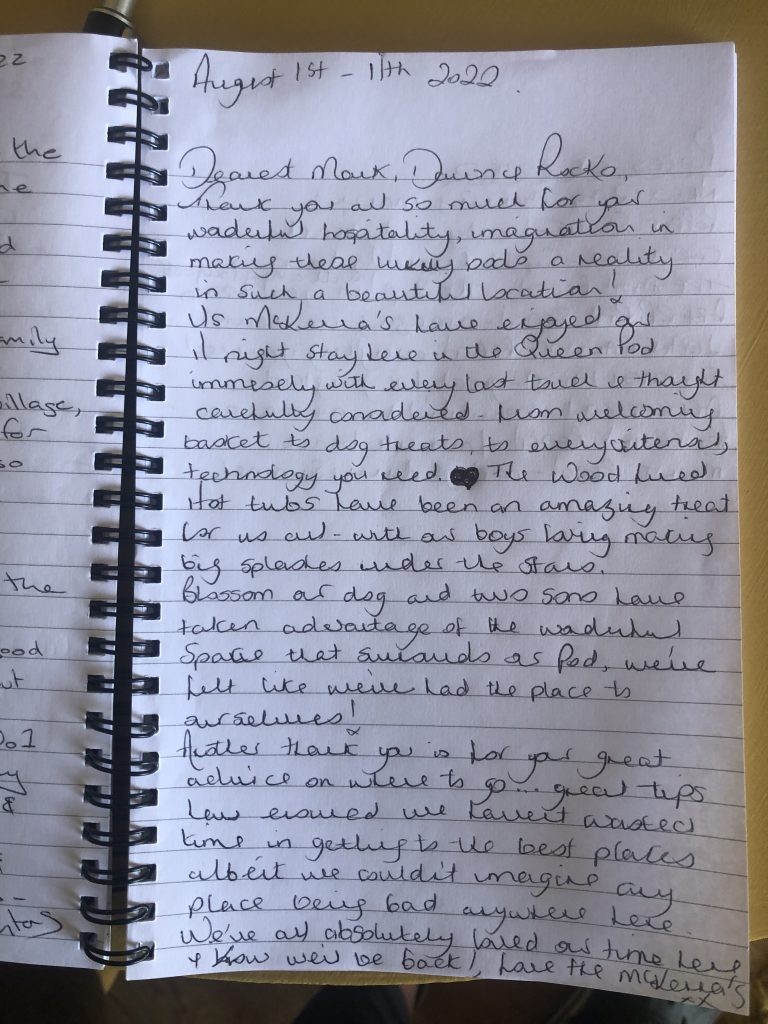 22
the
ne
d
amily
village,
for
so
the
ood
ut
Do1
&
August 1st - 11th 2022.
Dearest Mark, Rocko,
Thank you all so much for your
wonderful hospitality, imagination in
making these luxury pods a reality
in such a beautiful location!
Us McKenna's have enjoyed our
11 night stay here in the Queen Pod
immensely with every last touch & thought
carefully considered - from welcoming
basket to dog treats, to every
technology you need. The Wood fired
Hot tubs have been an amazing treat
for us all - with our boys loving making
big splashes under the stars.
Blossom our dog and two sons have
taken advantage of the wonderful
space that surrounds our Pod, we've
felt like we've had the place to
ourselves!
Another thank you is for your great
advice on where to go... great tips
have ensured we haven't wasted
time in getting to the best places
albeit we couldn't imagine any
place being bad anywhere here.
We've all absolutely loved our time here
& know we'll be back!, love the McKenna's
xx